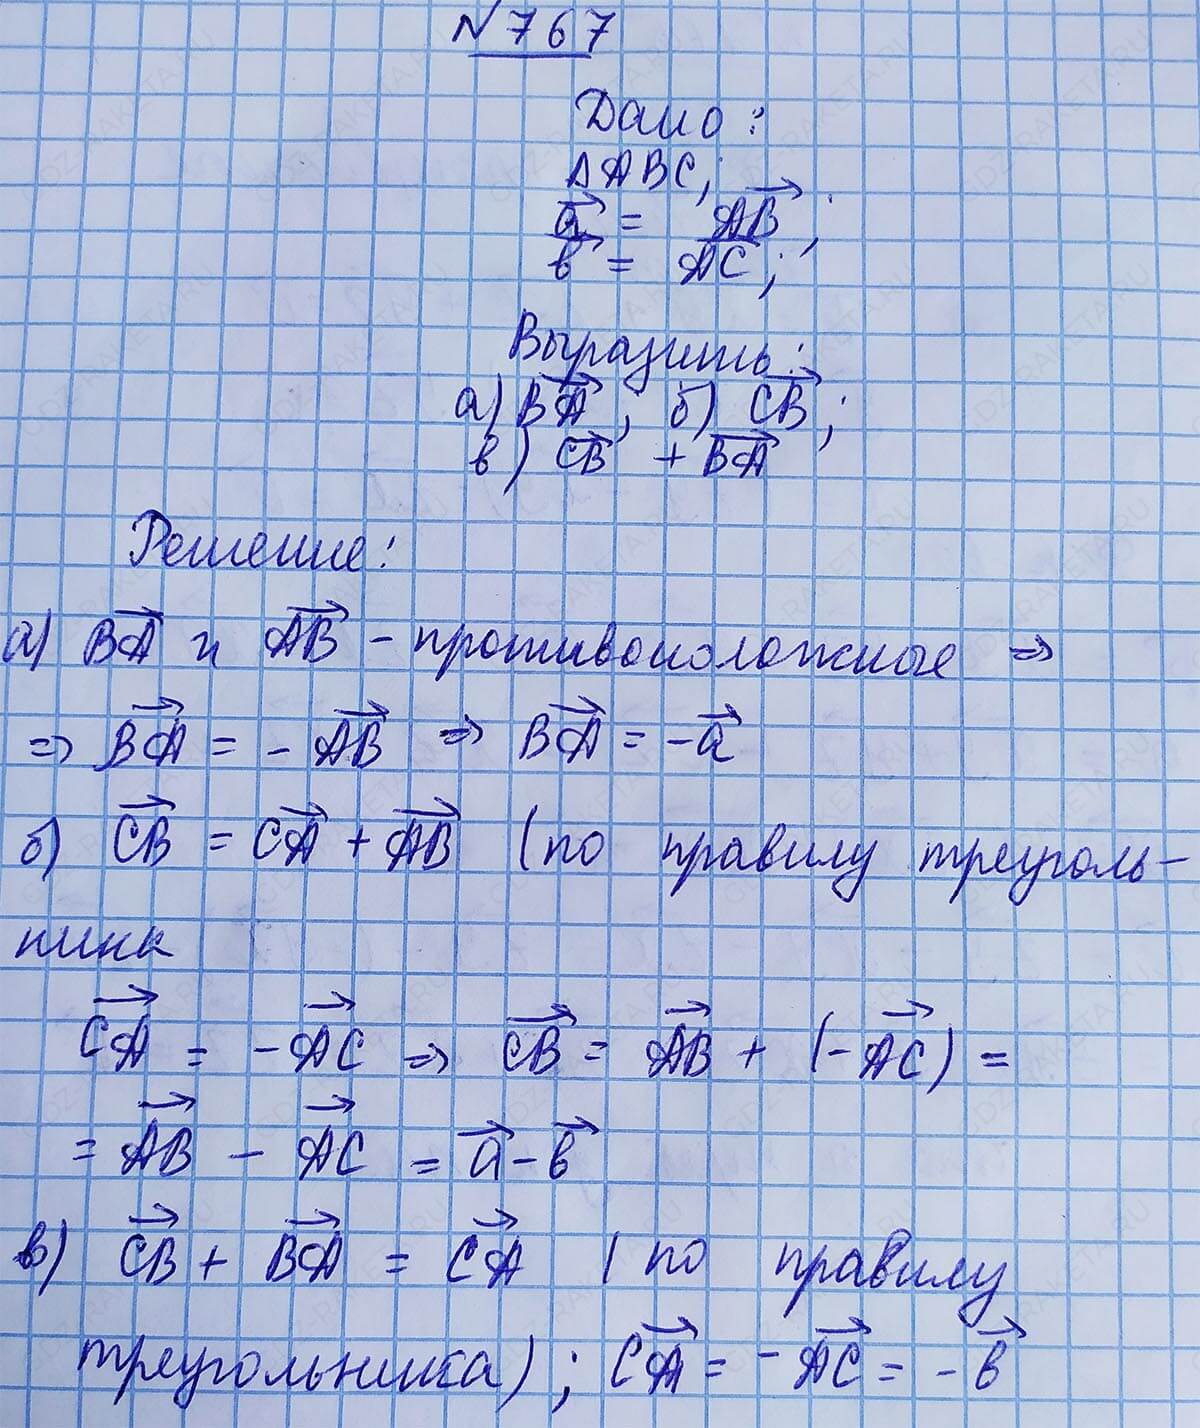 №767
Дано:
ΔABC;
a⃗ = AB⃗;
в⃗ = AC⃗;
Выразить:
а) BA⃗, б) CB⃗;
в) CB⃗ + BA⃗
Решение:
а) BA⃗ и AB⃗ - противоположные =>
=> BA⃗ = - AB⃗ => BA⃗ = -a⃗
б) CB⃗ = CA⃗ + AB⃗ (по правилу треуголь-
ника
CA⃗ = -AC⃗ => CB⃗ = AB⃗ + (-AC⃗) =
= AB⃗ - AC⃗ = a⃗-в⃗
в) CB⃗ + BA⃗ = CA⃗ (по правилу
треугольника); CA⃗ = -AC⃗ = -в⃗
GDZ-RAKETA.RU